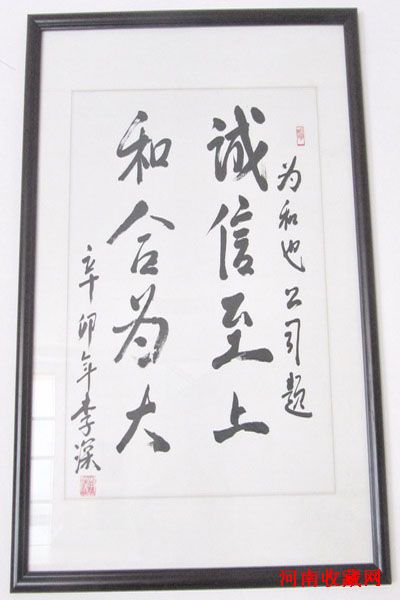 为和也公司题
诚信至上
和合为大
辛卯年李深
河南收藏网